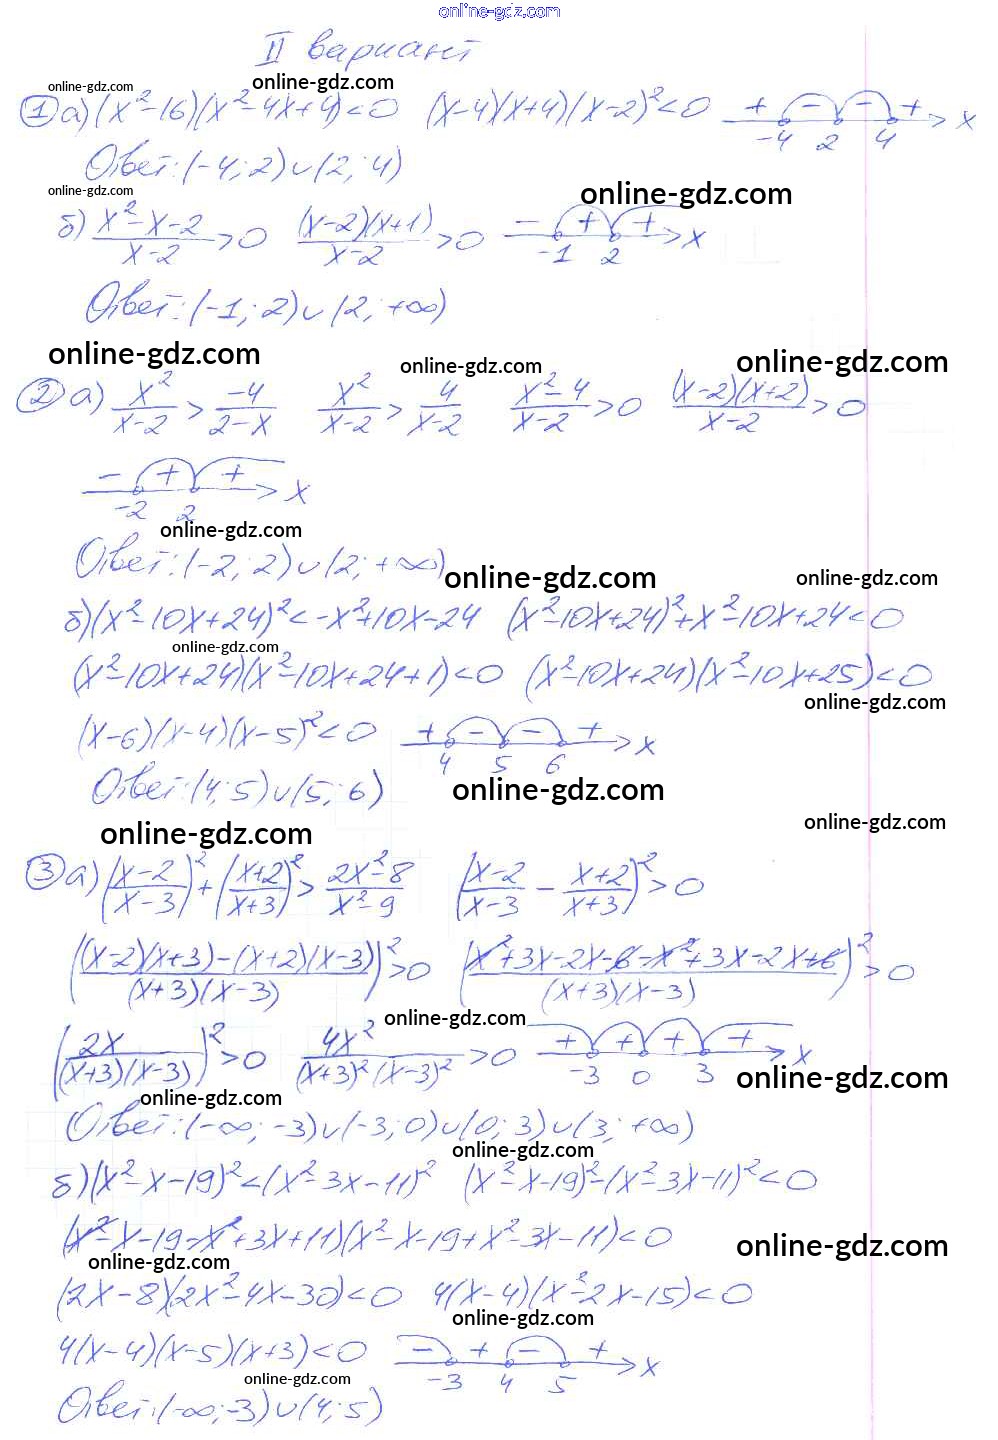 online-gdz.com
II вариант
online-gdz.com online-gdz.com
① а) (x²-16)(x²-4x+4)<0 (x-4)(x+4)(x-2)²<0 + - - + -4 2 4 x
Ответ: (-4; 2)∪(2; 4)
online-gdz.com online-gdz.com
б) (x²-x-2)/(x-2)>0 ((x-2)(x+1))/(x-2)>0 - + + -1 2 x
Ответ: (-1; 2)∪(2; +∞)
online-gdz.com online-gdz.com online-gdz.com
② а) x²/(x-2) > -4/(2-x) x²/(x-2) > 4/(x-2) (x²-4)/(x-2)>0 ((x-2)(x+2))/(x-2)>0
- + + -2 2 x
online-gdz.com
Ответ: (-2; 2)∪(2; +∞)
online-gdz.com online-gdz.com
б) (x²-10x+24)²<-x²+10x-24 (x²-10x+24)²+x²-10x+24<0
online-gdz.com
(x²-10x+24)(x²-10x+24+1)<0 (x²-10x+24)(x²-10x+25)<0
online-gdz.com
(x-6)(x-4)(x-5)²<0 + - - + 4 5 6 x
Ответ: (4; 5)∪(5; 6)
online-gdz.com
online-gdz.com online-gdz.com
③ а) ((x-2)/(x-3))²+((x+2)/(x+3))²>(2x²-8)/(x²-9) ((x-2)/(x-3) - (x+2)/(x+3))²>0
(((x-2)(x+3)-(x+2)(x-3))/((x+3)(x-3)))²>0 ((x²+3x-2x-6-x²+3x-2x+6)/((x+3)(x-3)))²>0
online-gdz.com
(2x/((x+3)(x-3)))²>0 4x²/((x+3)²(x-3)²)>0 + + + + -3 0 3 x
online-gdz.com online-gdz.com
Ответ: (-∞; -3)∪(-3; 0)∪(0; 3)∪(3; +∞)
online-gdz.com
б) (x²-x-19)²<(x²-3x-11)² (x²-x-19)²-(x²-3x-11)²<0
(x²-x-19-x²+3x+11)(x²-x-19+x²-3x-11)<0
online-gdz.com online-gdz.com
(2x-8)(2x²-4x-30)<0 4(x-4)(x²-2x-15)<0
online-gdz.com
4(x-4)(x-5)(x+3)<0 - + - + -3 4 5 x
online-gdz.com
Ответ: (-∞; -3)∪(4; 5)